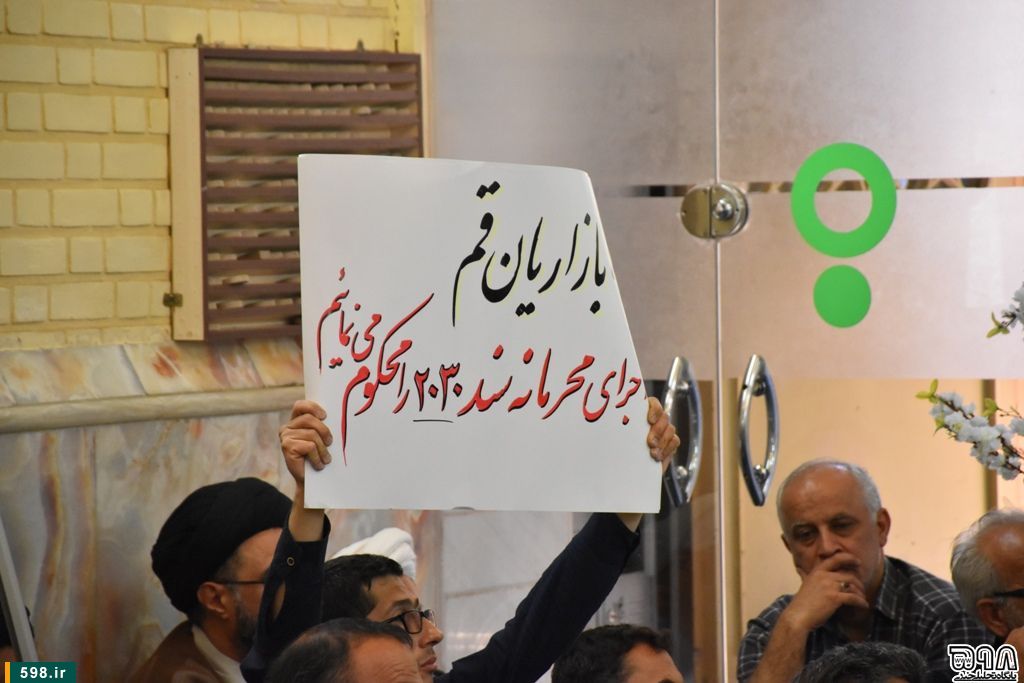 بازاریان قم
جرای محرمانه سند ۲۰۳۰ را محکوم
می نمائیم
598.ir